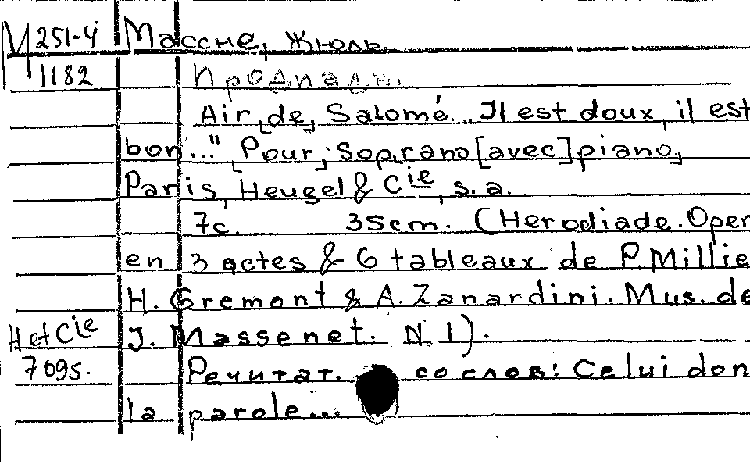 М 251-4 Массне, Жюль.
1182 Иродиада.
Air de Salomé "Il est doux, il est
bon..." Pour Soprano [avec] piano,
Paris, Heugel & Cie, s.a.
7с. 35cm. (Herodiade. Oper
en 3 actes & 6 tableaux de P. Millie
H. Gremont & A. Zanardini. Mus. de
H et Cie J. Massenet. N 1).
7095. Речитат. со слов: Celui don
la parole...